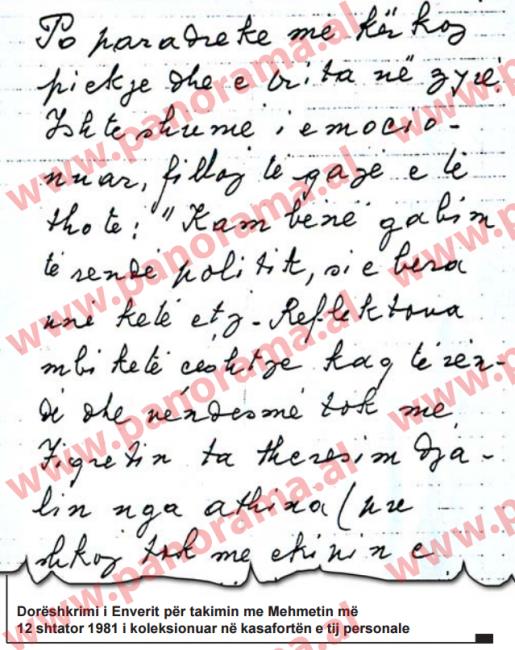 Po paradreke më kërkoj
piekje dhe e prita në zyrë.
Ishte shumë i emocio-
nuar, filloj të qajë e të
thotë: "Kam bënë gabim
të rendë politik, si e bëra
unë ketë etj. Reflektova
mbi ketë ceshtje kaq të rën-
dë dhe vendosmë tok me
Fiqretin ta theresim dja-
lin nga athina (ure
shkoj tok me ekipin e
Dorëshkrimi i Enverit për takimin me Mehmetin më
12 shtator 1981 i koleksionuar në kasafortën e tij personale
www.panorama.al